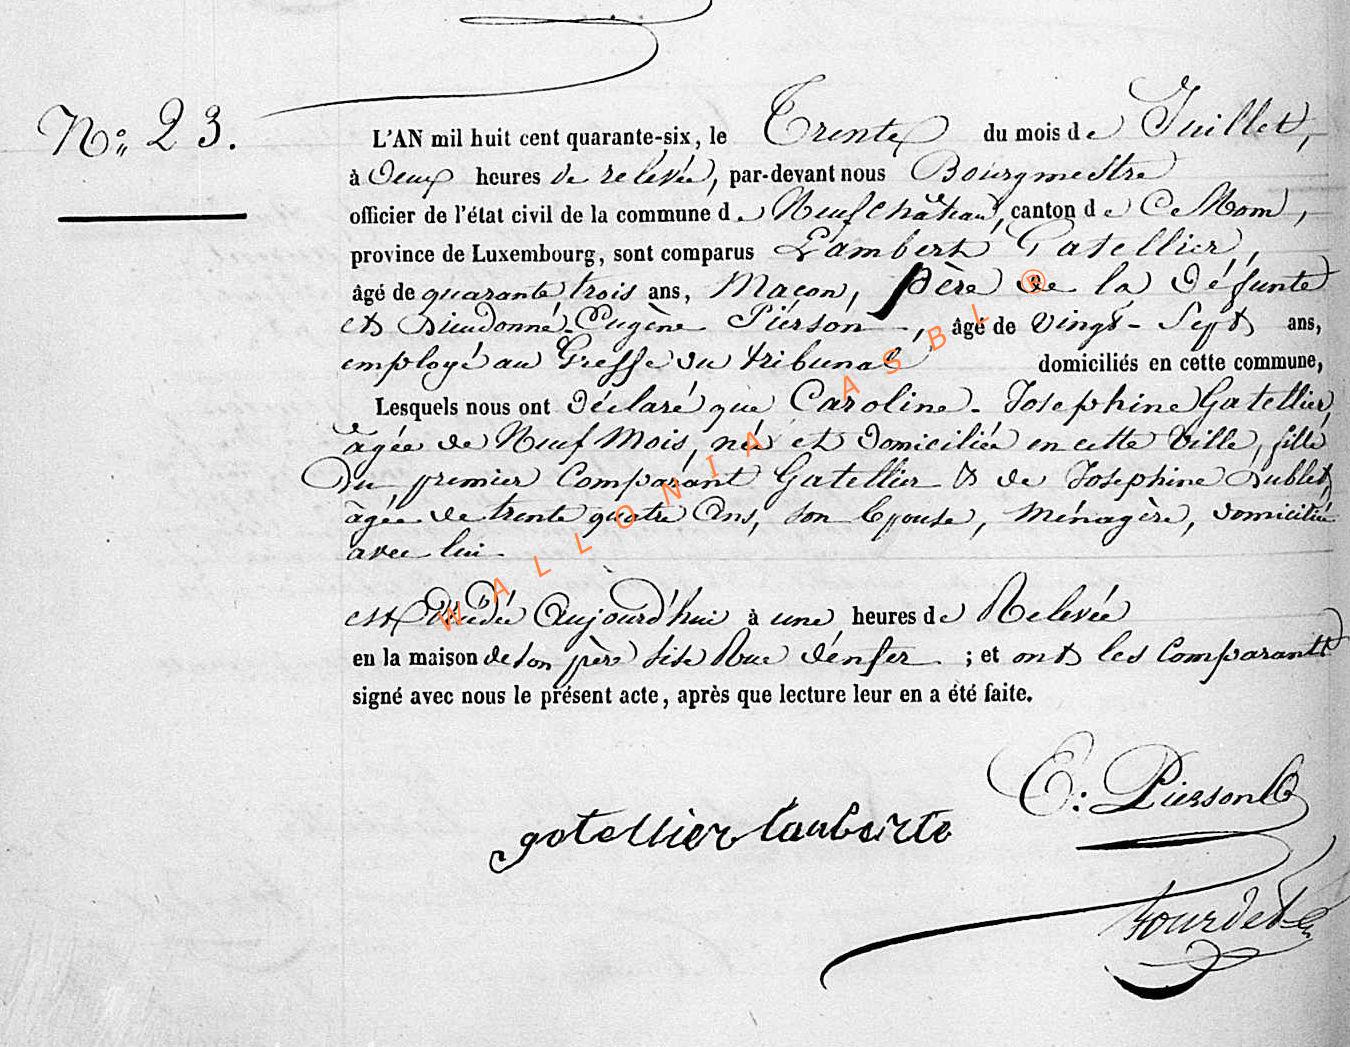 N.° 23.
L'AN mil huit cent quarante-six, le Trente du mois de Juillet,
à Deux heures de relevée, par-devant nous Bourgmestre
officier de l'état civil de la commune de Neufchâteau, canton de Ce Nom,
province de Luxembourg, sont comparus Lambert Gatellier,
âgé de quarante trois ans, Maçon, père de la Défunte
et Dieudonné-Eugène Pierson, âgé de Vingt-Sept ans,
employé au Greffe du tribunal domiciliés en cette commune,
Lesquels nous ont Déclaré que Caroline-Josephine Gatellier,
âgée de Neuf Mois, née et Domiciliée en cette Ville, fille
Du premier Comparant Gatellier & de Josephine Dublet,
âgée de trente quatre Ans, son Epouse, Ménagère, Domiciliée
avec lui.
est Décédée Aujourd'hui à une heures de Relevée
en la maison de son père sise Rue d'enfer ; et ont les Comparants
signé avec nous le présent acte, après que lecture leur en a été faite.
E: Pierson
gatellier lamberte
Tourdet
WALLONIA ASBL ®